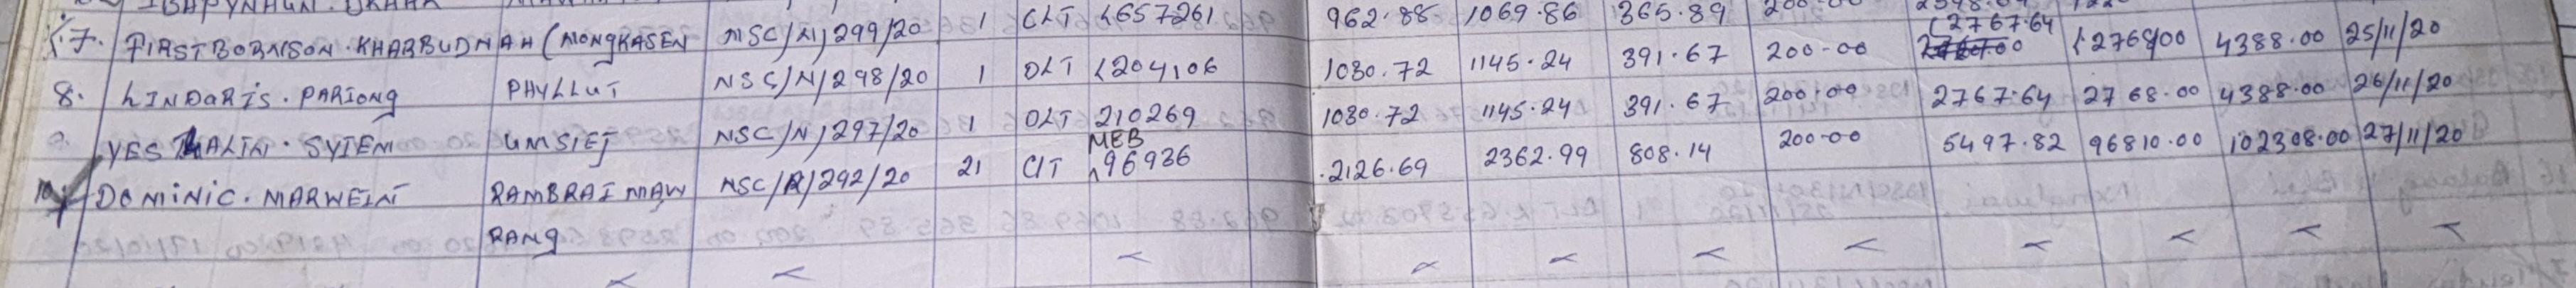 7. FIRSTBORNISON.KHARBUDNAH (MONGKASEN NSC/N/299/20 1 CLT L657261 962.88 1069.86 365.89
8. LINDARIS.PARIONG PHYLLUT NSC/N/298/20 1 DLT L204106 1030.72 1145.24 391.67 200-00 2767.64 2768.00 4388.00 25/11/20
SYIEM UMSIEJ NSC/N/297/20 1 DLT 210269 1030.72 1145.24 391.67 200.00 2767.64 2768.00 4388.00 26/11/20
MEB
10. DOMINIC.MARWEIN RAMBRAI MAW NSC/R/292/20 21 CIT 196936 2126.69 2362.99 808.14 200-00 5497.82 96810.00 102308.00 27/11/20
RANG